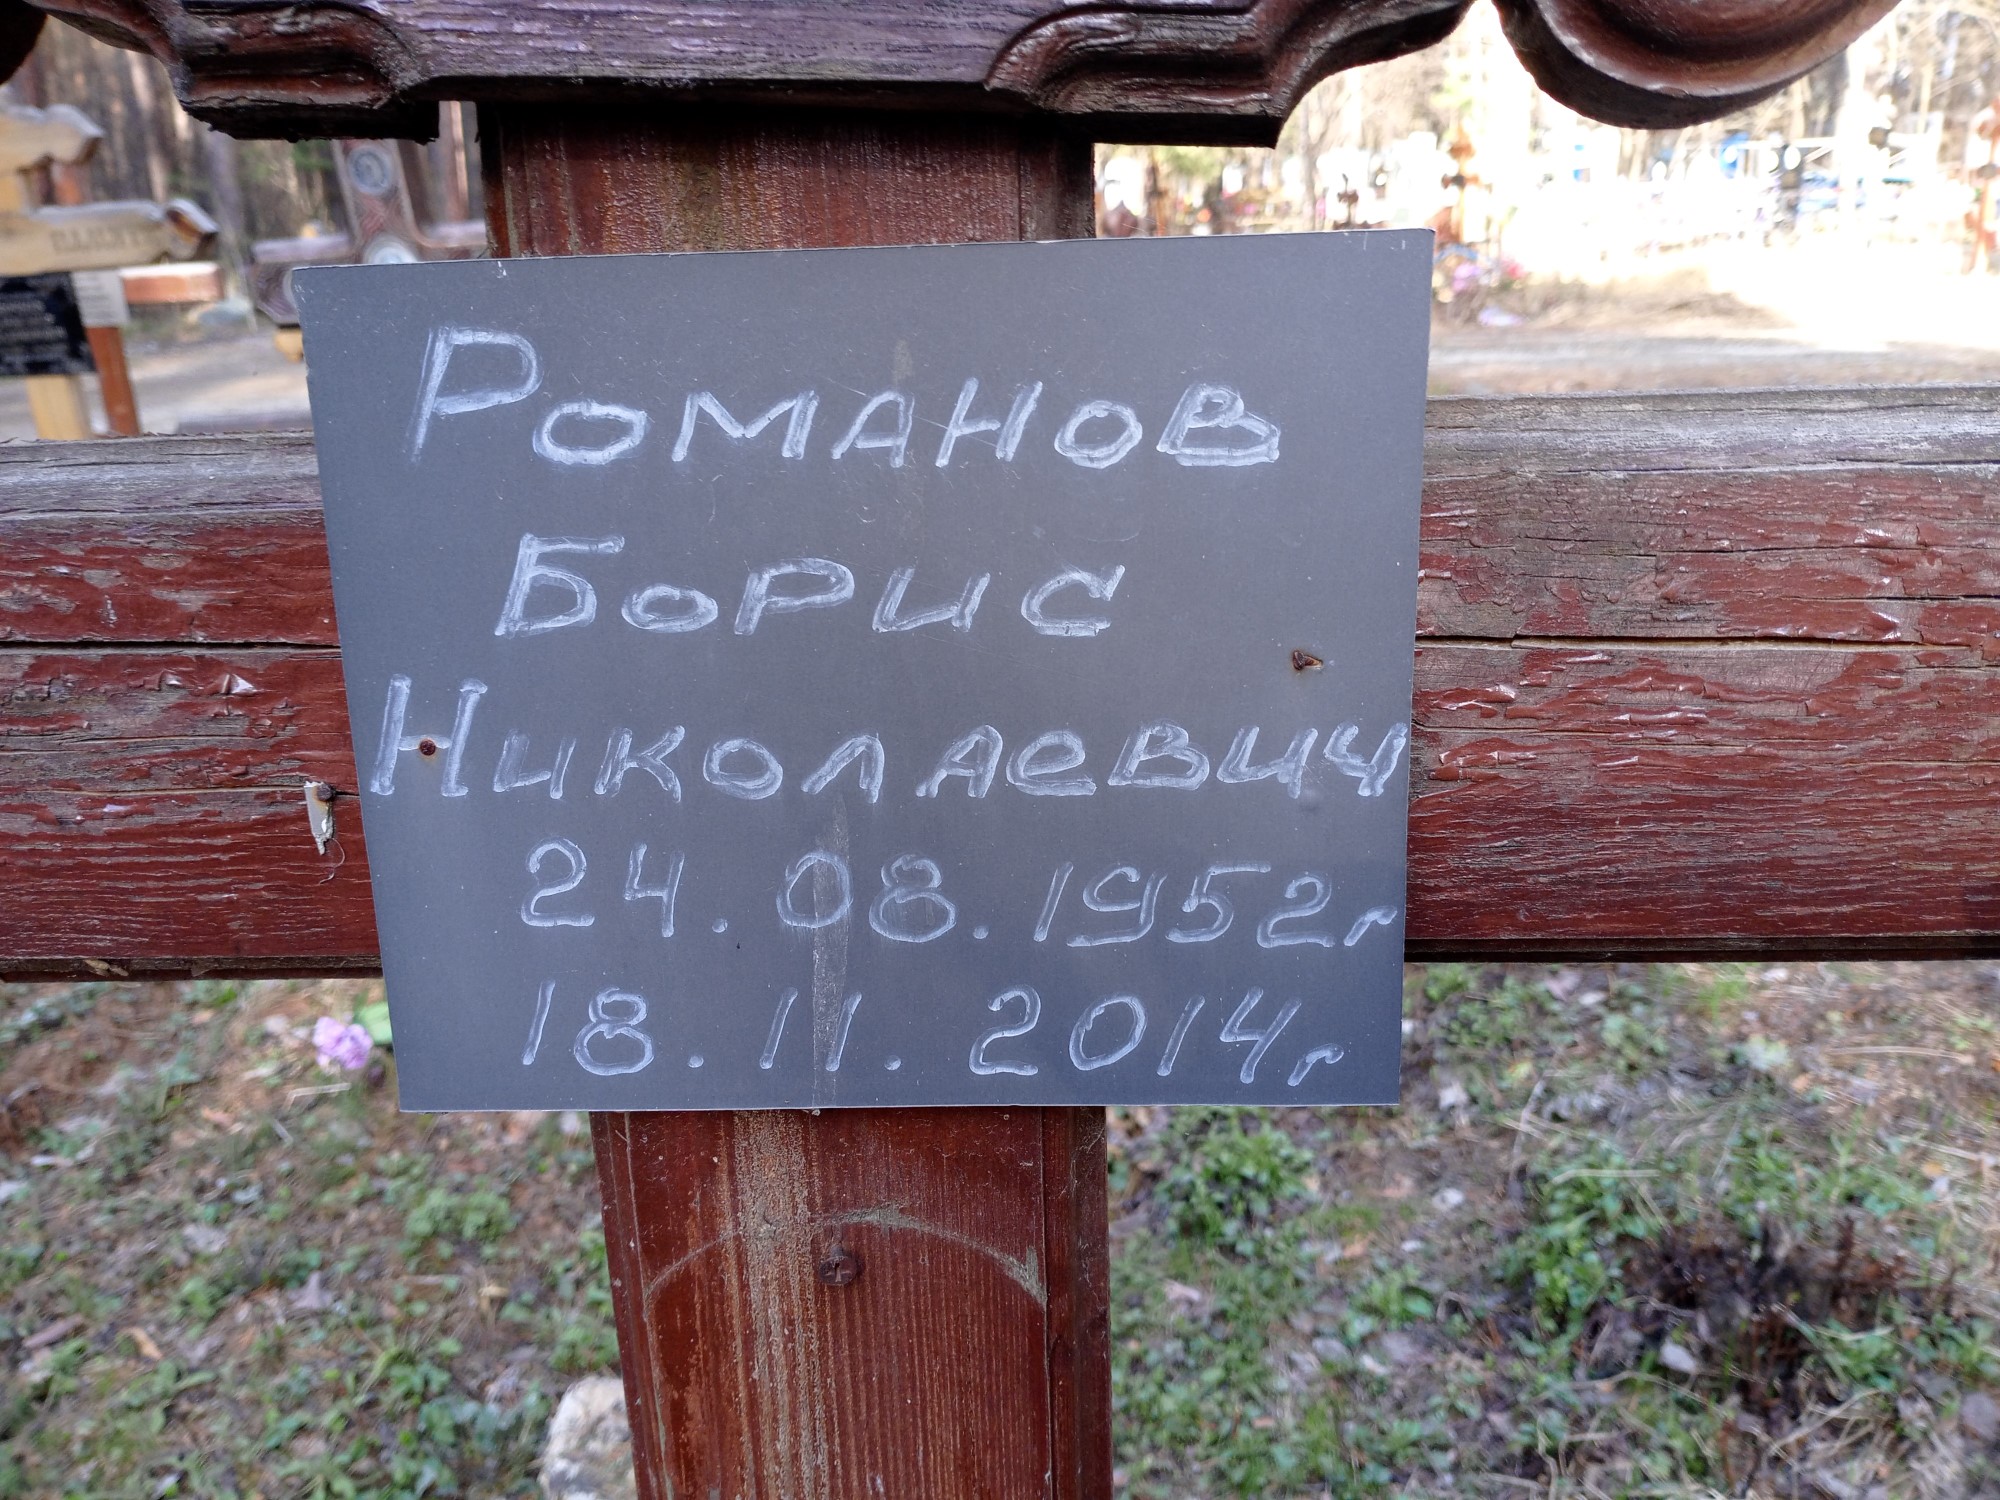 Романов
Борис
Николаевич
24.08.1952г
18.11.2014г